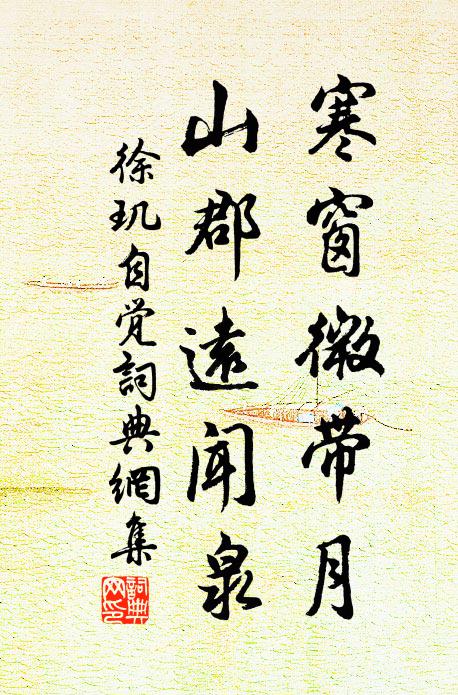 寒窗微带月
山郡遠闻泉
徐玑自觉詞典網集
詞典